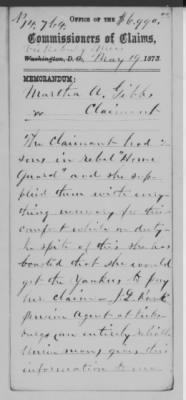 No 14,764. $6,990.
OFFICE OF THE
Commissioners of Claims,
Vicksburg Miss
Washington, D. C., May 19, 1873.
MEMORANDUM:
Martha A. Gibbs
Claimant
The Claimant had
sons in rebel "Home
Guard" and she sup
plied them with every
thing necessary for their
comfort while on duty
In spite of this she has
boasted that she would
get the Yankees to pay
her claim J. L.
Agent at Vicks
burg an entirely reliable
Union man, gives this
information to me